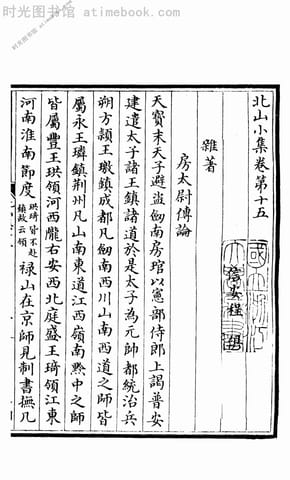 时光图书馆 - atimebook.com
北山小集卷第十五
信安程
雜著
房太尉傳論
天寶末天子避盜劒南房琯以憲部侍郎上謁普安
建遣太子諸王鎮諸道於是太子為元帥都統治兵
朔方頴王璬鎮劒南西川山南西道之師皆
屬永王璘鎮荆州凡山南東道江西嶺南黔中之師
皆屬豐王珙領河西隴右安西北庭盛王琦領江東
河南淮南節度珙琦皆不赴鎮故云領禄山在京師見制書撫几